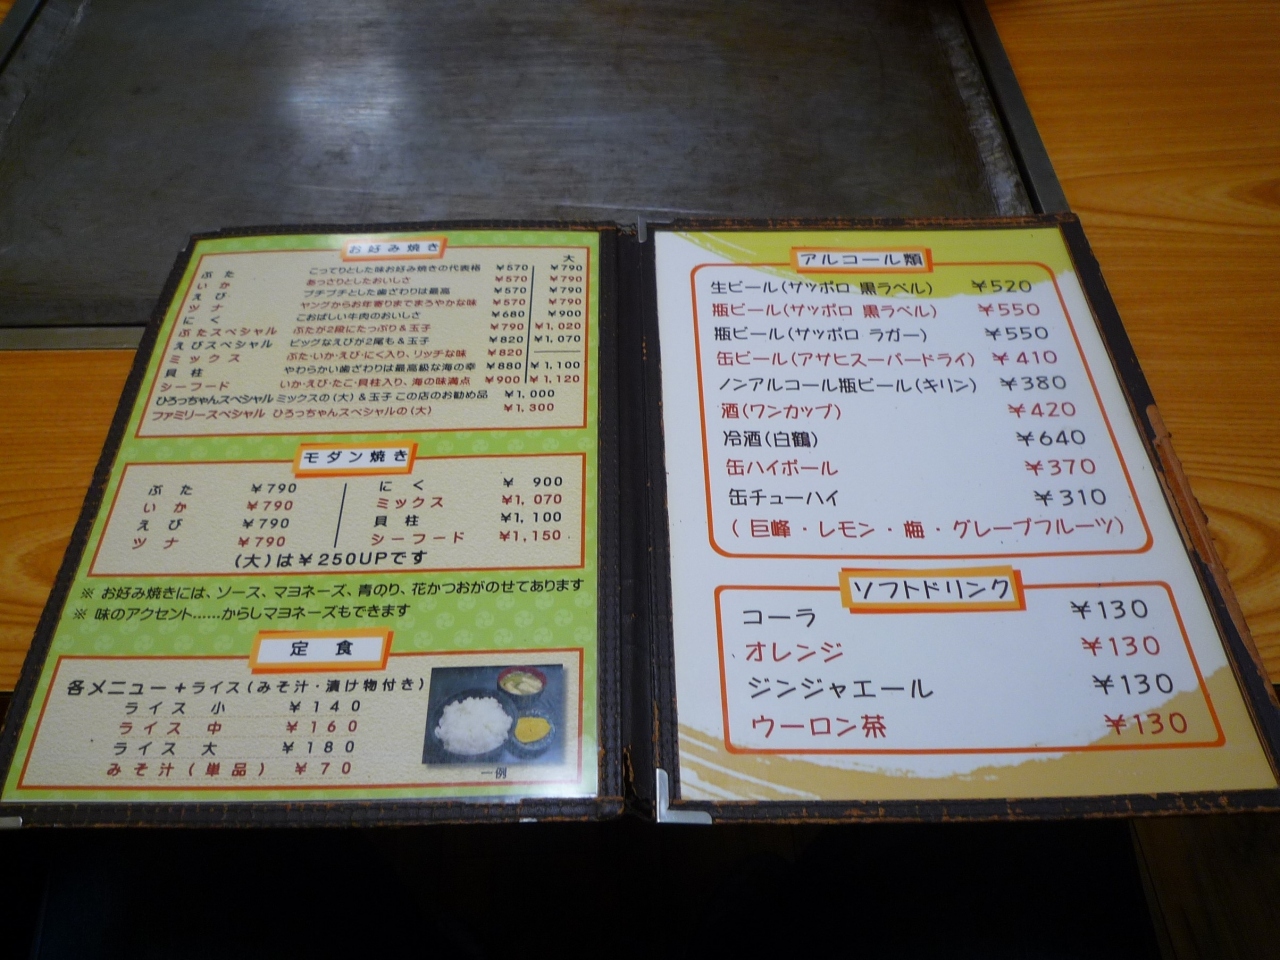 お好み焼き
大
ぶた こってりとした味お好み焼きの代表格 ¥570 ¥790
いか あっさりとしたおいしさ ¥570 ¥790
えび プチプチとした歯ざわりは最高 ¥570 ¥790
ツナ ヤングからお年寄りまでまろやかな味 ¥570 ¥790
にく こおばしい牛肉のおいしさ ¥680 ¥900
ぶたスペシャル ぶたが2段にたっぷり&玉子 ¥790 ¥1,020
えびスペシャル ビッグなえびが2尾も&玉子 ¥820 ¥1,070
ミックス ぶた・いか・えび・にく入り、リッチな味 ¥820
貝柱 やわらかい歯ざわりは最高級な海の幸 ¥880 ¥1,100
シーフード いか・えび・たこ・貝柱入り、海の味満点 ¥900 ¥1,120
ひろっちゃんスペシャル ミックスの(大)&玉子 この店のお勧め品 ¥1,000
ファミリースペシャル ひろっちゃんスペシャルの(大) ¥1,300
モダン焼き
ぶた ¥790 にく ¥900
いか ¥790 ミックス ¥1,070
えび ¥790 貝柱 ¥1,100
ツナ ¥790 シーフード ¥1,150
(大)は¥250UPです
※ お好み焼きには、ソース、マヨネーズ、青のり、花かつおがのせてあります
※ 味のアクセント……からしマヨネーズもできます
定食
各メニュー+ライス(みそ汁・漬け物付き)
ライス 小 ¥140
ライス 中 ¥160
ライス 大 ¥180
みそ汁(単品) ¥70
一例
アルコール類
生ビール(サッポロ 黒ラベル) ¥520
瓶ビール(サッポロ 黒ラベル) ¥550
瓶ビール(サッポロ ラガー) ¥550
缶ビール(アサヒスーパードライ) ¥410
ノンアルコール瓶ビール(キリン) ¥380
酒(ワンカップ) ¥420
冷酒(白鶴) ¥640
缶ハイボール ¥370
缶チューハイ ¥310
(巨峰・レモン・梅・グレープフルーツ)
ソフトドリンク
コーラ ¥130
オレンジ ¥130
ジンジャエール ¥130
ウーロン茶 ¥130